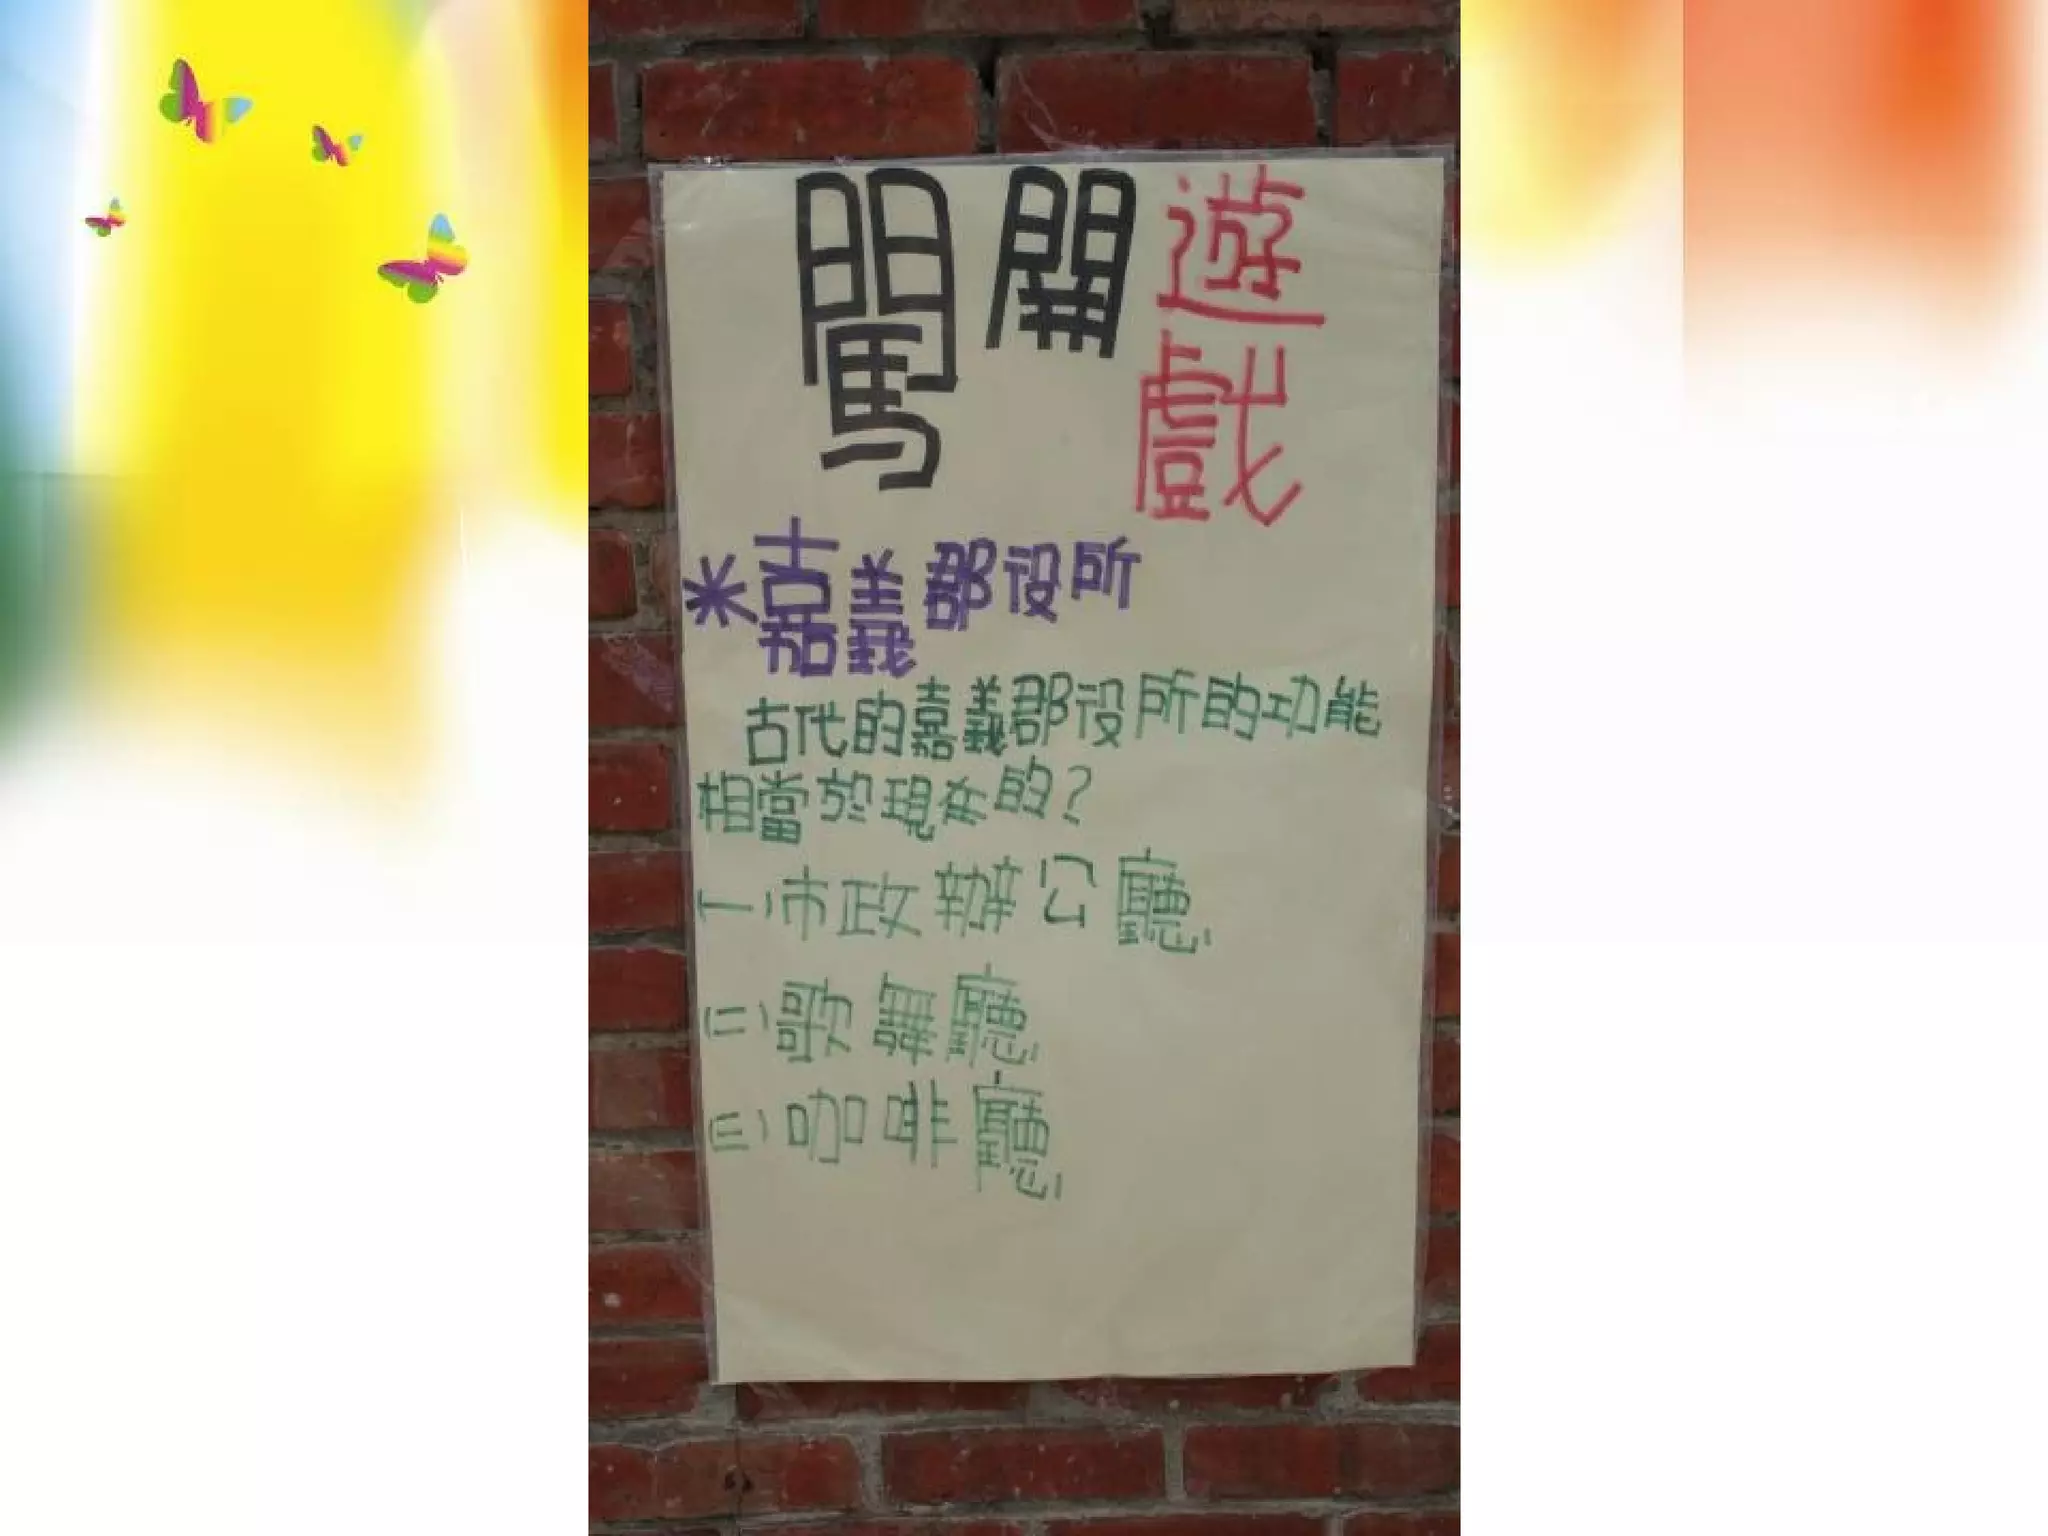 闖開遊戲
*嘉義郡役所
古代的嘉義郡役所的功能
相當於現在的?
(一)市政辦公廳
(二)歌舞廳
(三)咖啡廳